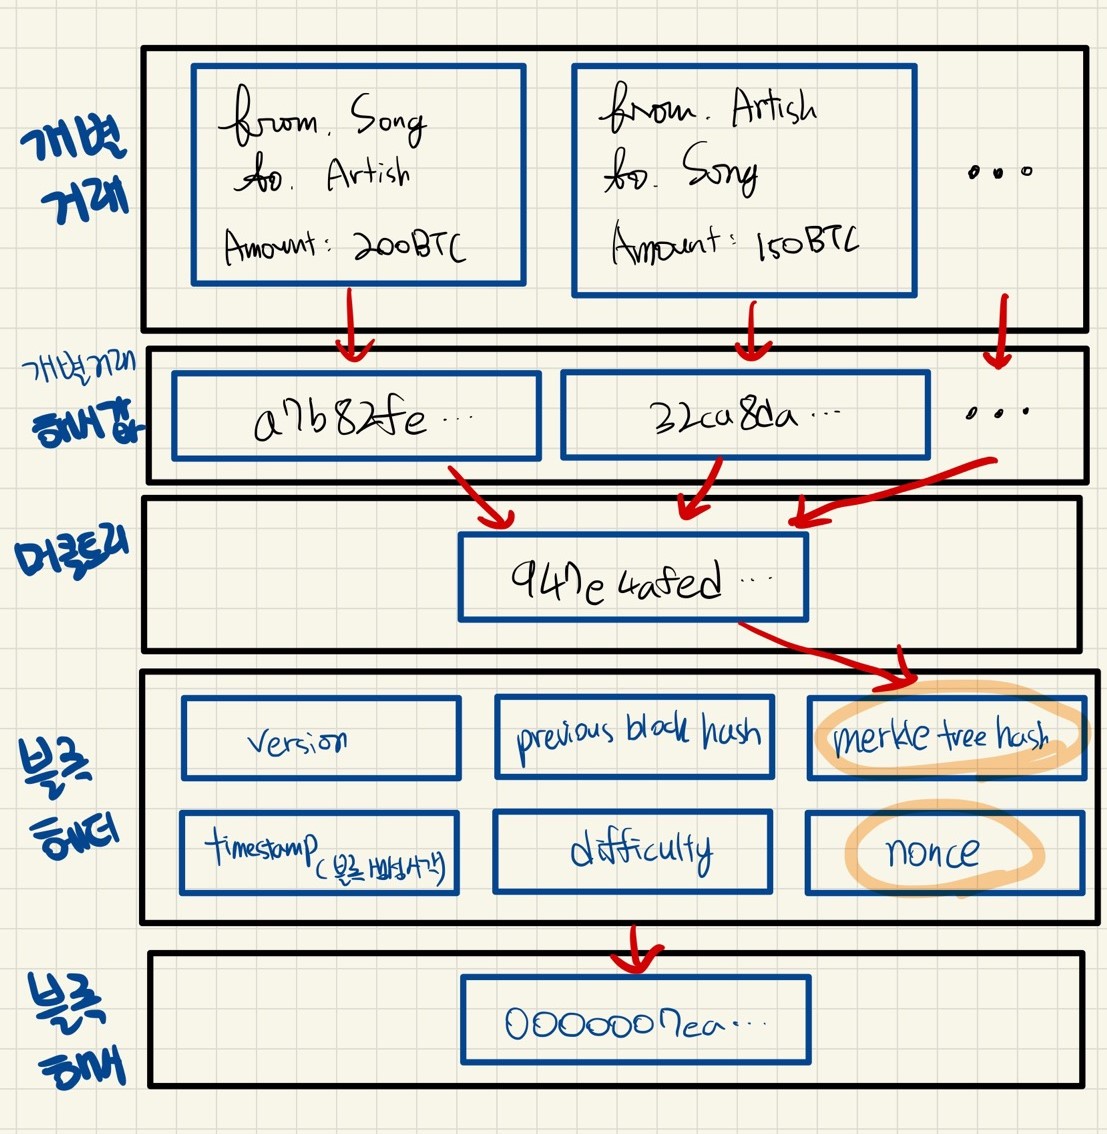 개별
거래
from. Song
to. Artish
Amount: 200BTC
from. Artish
to. Song
Amount: 150BTC
...
개별거래
해시값
a7b82fe...
32ca8da...
...
머클트리
947e4afed...
블록
헤더
version
previous block hash
merkle tree hash
timestamp
(블록생성시각)
difficulty
nonce
블록
해시
0000007ea...